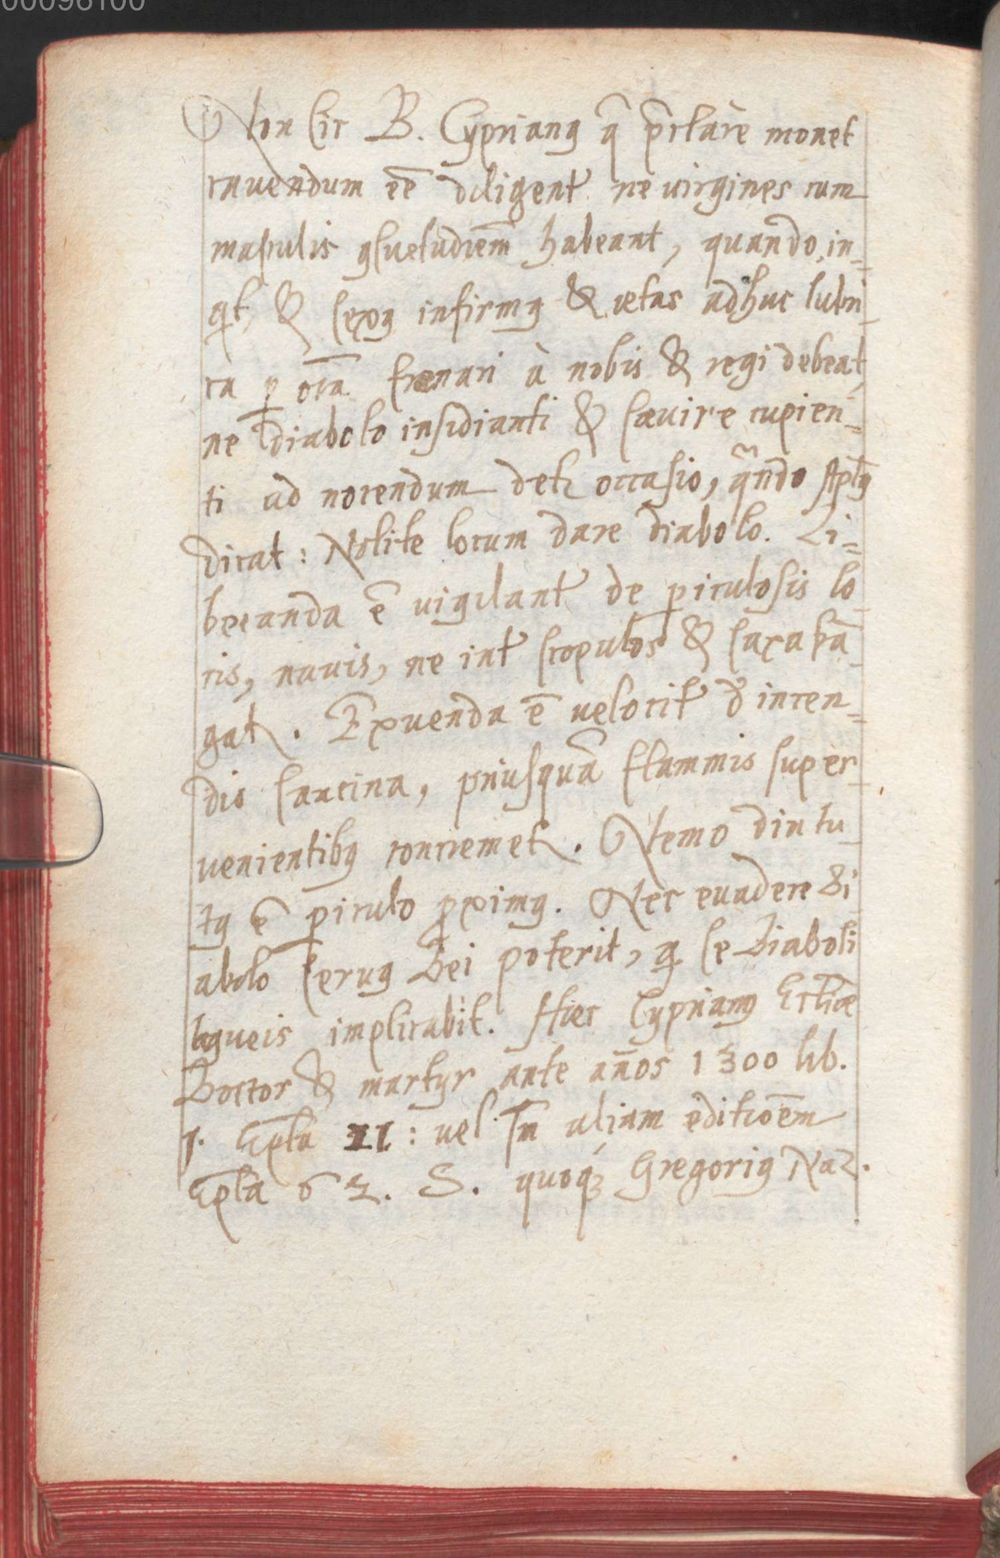 00096100
Non sic B. Cyprianꝰ qͥ p̄clarè monet
cavendum eē diligent̄ ne virgines cum
masculis ꝯsuetudiem̄ habeant, quando, in-
qt, & sexꝰ infirmꝰ & ætas adhuc lubri
ca ꝑ oīa frenari à nobis & regi debeat,
ne diabolo insidianti & sævire cupien-
ti ad nocendum detꝛ occasio, qn̄do Aplꝰ
dicat: Nolite locum dare diabolo. Li-
beranda ē vigilant̄ de ꝑiculosis lo
cis, navis, ne int̄ scopulos & saxa frā
gatꝛ. Exuenda ē velocit̄ d̄ incen-
dio sarcina, priusquā flammis super
venientibꝰ concremetꝛ. Nemo diu tu
tꝰ ē ꝑiculo ꝓximꝰ. Nec evadere Di
abolo servꝰ Dei poterit, q se Diaboli
laqueis implicabit. Hæc Cyprianꝰ Ecclīæ
Doctor & martyr ante an̄os 1300 lib.
1. Epl̄a II: vel In aliam editioēm
Epl̄a 62. S. quoqꝫ Gregoriꝰ Naz.